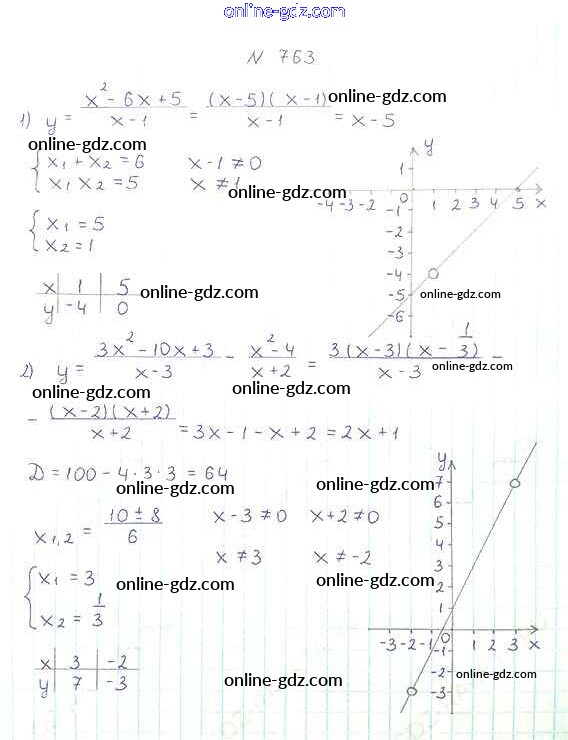 online-gdz.com
N 763
1) y = (x² - 6x + 5)/(x - 1) = ((x - 5)(x - 1))/(x - 1) = x - 5
online-gdz.com
online-gdz.com
{ x₁ + x₂ = 6
x₁ x₂ = 5
x - 1 ≠ 0
x ≠ 1
online-gdz.com
{ x₁ = 5
x₂ = 1
x | 1 | 5
y | -4 | 0
online-gdz.com
y
1
-4 -3 -2 0 1 2 3 4 5 x
-1
-2
-3
-4
-5
-6
online-gdz.com
2) y = (3x² - 10x + 3)/(x - 3) - (x² - 4)/(x + 2) = (3(x - 3)(x - 1/3))/(x - 3) -
online-gdz.com
online-gdz.com
online-gdz.com
- ((x - 2)(x + 2))/(x + 2) = 3x - 1 - x + 2 = 2x + 1
online-gdz.com
D = 100 - 4 · 3 · 3 = 64
online-gdz.com
online-gdz.com
x₁,₂ = (10 ± 8)/6
x - 3 ≠ 0 x + 2 ≠ 0
x ≠ 3 x ≠ -2
{ x₁ = 3
x₂ = 1/3
online-gdz.com
online-gdz.com
x | 3 | -2
y | 7 | -3
online-gdz.com
y
7
6
5
4
3
2
1
-3 -2 -1 0 1 2 3 x
-1
-2
-3
online-gdz.com